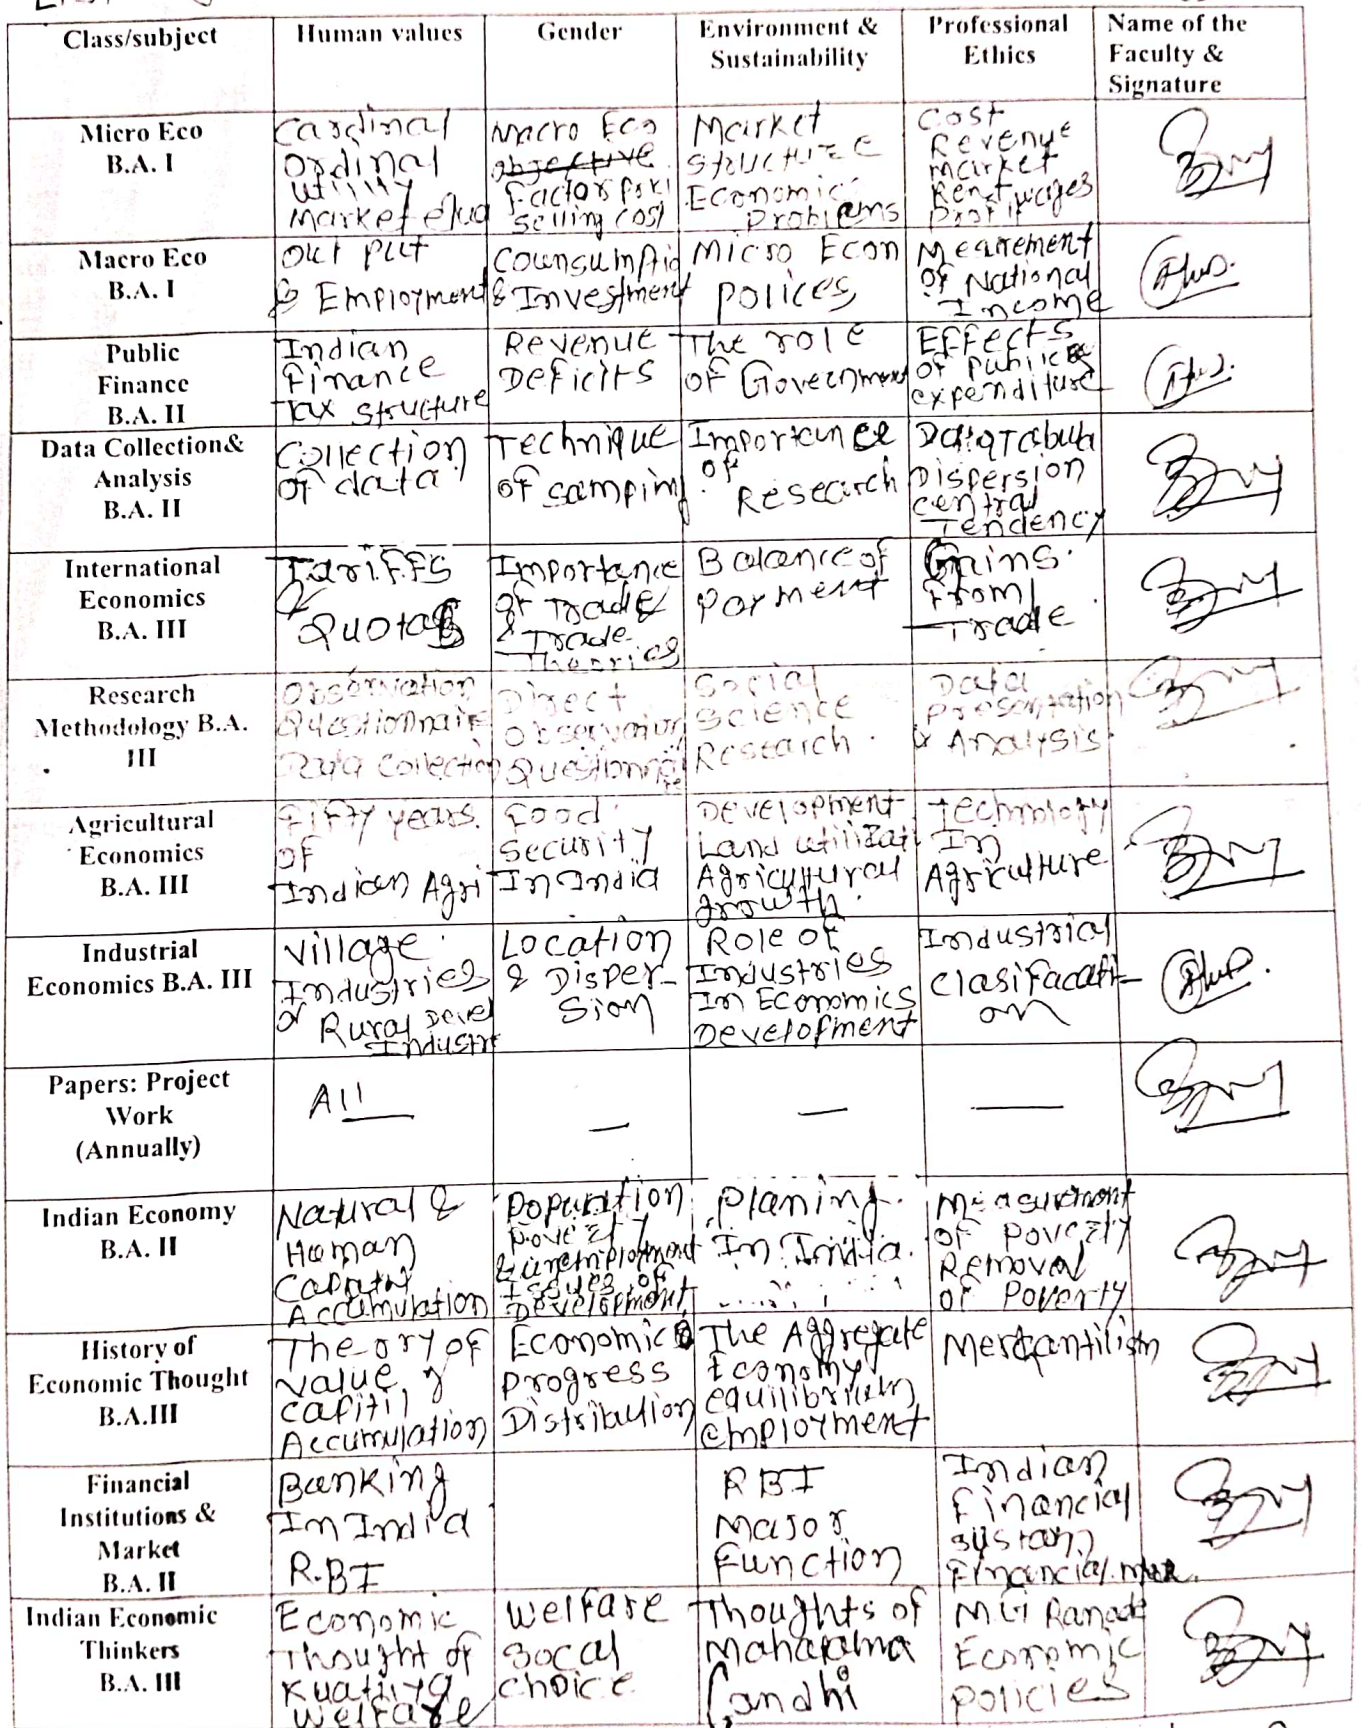 Class/subject
Human values
Gender
Environment &
Sustainability
Professional
Ethics
Name of the
Faculty &
Signature
Micro Eco
B.A. I
Cardinal
Ordinal
utility
Market
Macro Eco
objective
Factors
selling cost
Market
structure
Economic
Problems
Cost
Revenue
Market
Rent wages
Profit
Macro Eco
B.A. I
Out put
& Employment
Counsumptio
& Investment
Micro Econ
polices
Mearement
of National
Income
Public
Finance
B.A. II
Indian
Finance
Tax structure
Revenue
Deficits
The role
of Government
Effects
of Public
expenditure
Data Collection&
Analysis
B.A. II
Collection
of data
Technique
of sampling
Importance
of
Research
Data Tabula
Dispersion
central
Tendency
International
Economics
B.A. III
Tariffs
&
Quotas
Importance
of Trade
& Trade
Theories
Balance of
Payment
Gains
From
Trade
Research
Methodology B.A.
III
Observation
Questionnaire
Data Collection
Direct
Observation
Questionnaire
Social
Science
Research
Data
Presentation
& Analysis
Agricultural
Economics
B.A. III
Fifty years
of
Indian Agri
Food
Security
In India
Development
Land utilizati
Agricultural
growth
Technology
In
Agriculture
Industrial
Economics B.A. III
Village
Industries
& Rural Devel
Industri
Location
& Disper-
sion
Role of
Industries
In Economics
Development
Industrial
clasifacati-
on
Papers: Project
Work
(Annually)
All
Indian Economy
B.A. II
Natural &
Human
Accumulation
Population
Poverty
& unemployment
Issues of
Development
Planing
In India
Measurment
of Poverty
Removal
of Poverty
History of
Economic Thought
B.A.III
The-ory of
value &
Accumulation
Economic
Progress
Distribution
The Aggregate
Economy
equilibrium
employment
Mercantilism
Financial
Institutions &
Market
B.A. II
Banking
In India
R.BI
RBI
Major
Function
Indian
Financial
Financial
Indian Economic
Thinkers
B.A. III
Economic
Thought of
Welfare
Welfare
Social
choice
Thoughts of
Gandhi
M.G Ranade
Economic
policies